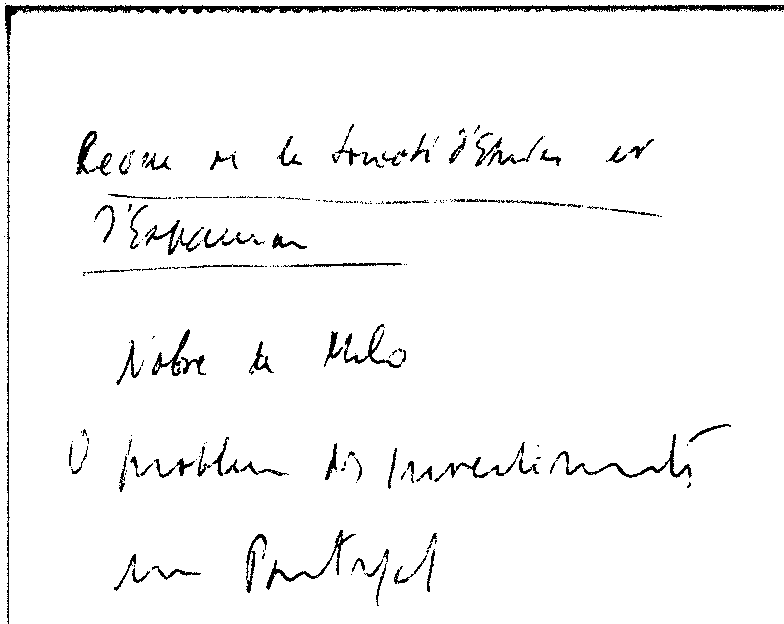 Revue de la Société d'Etudes et
d'Expansion
Nobre de Melo
O problema dos investimentos
em Portugal